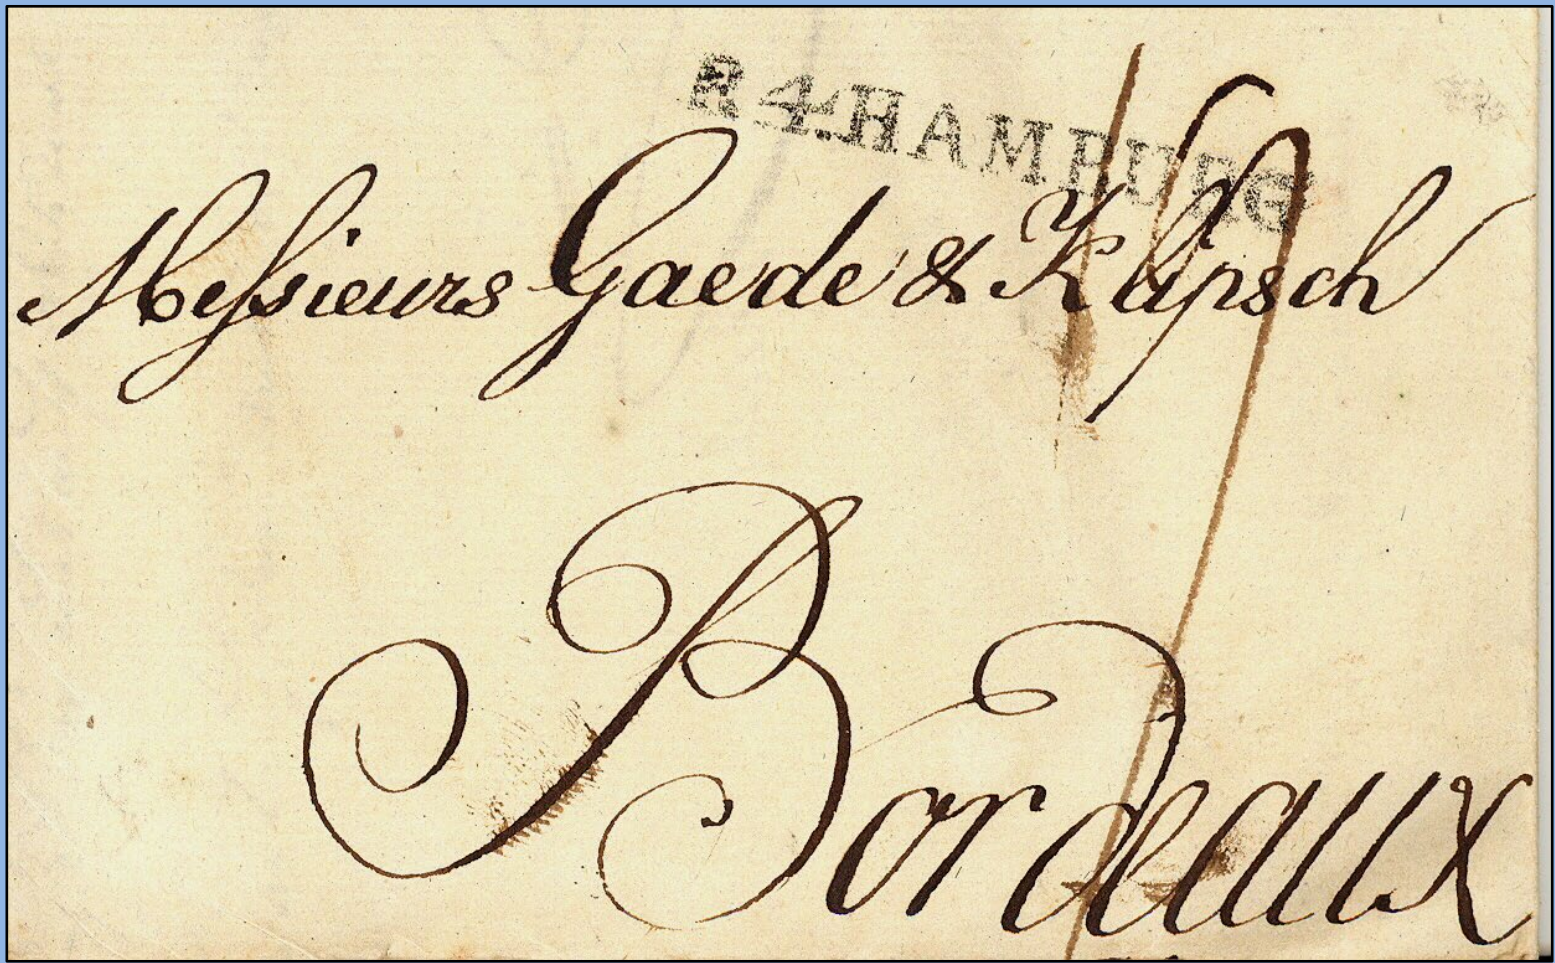 R 4. HAMBURG
Messieurs Gaede & Klipsch
Bordeaux